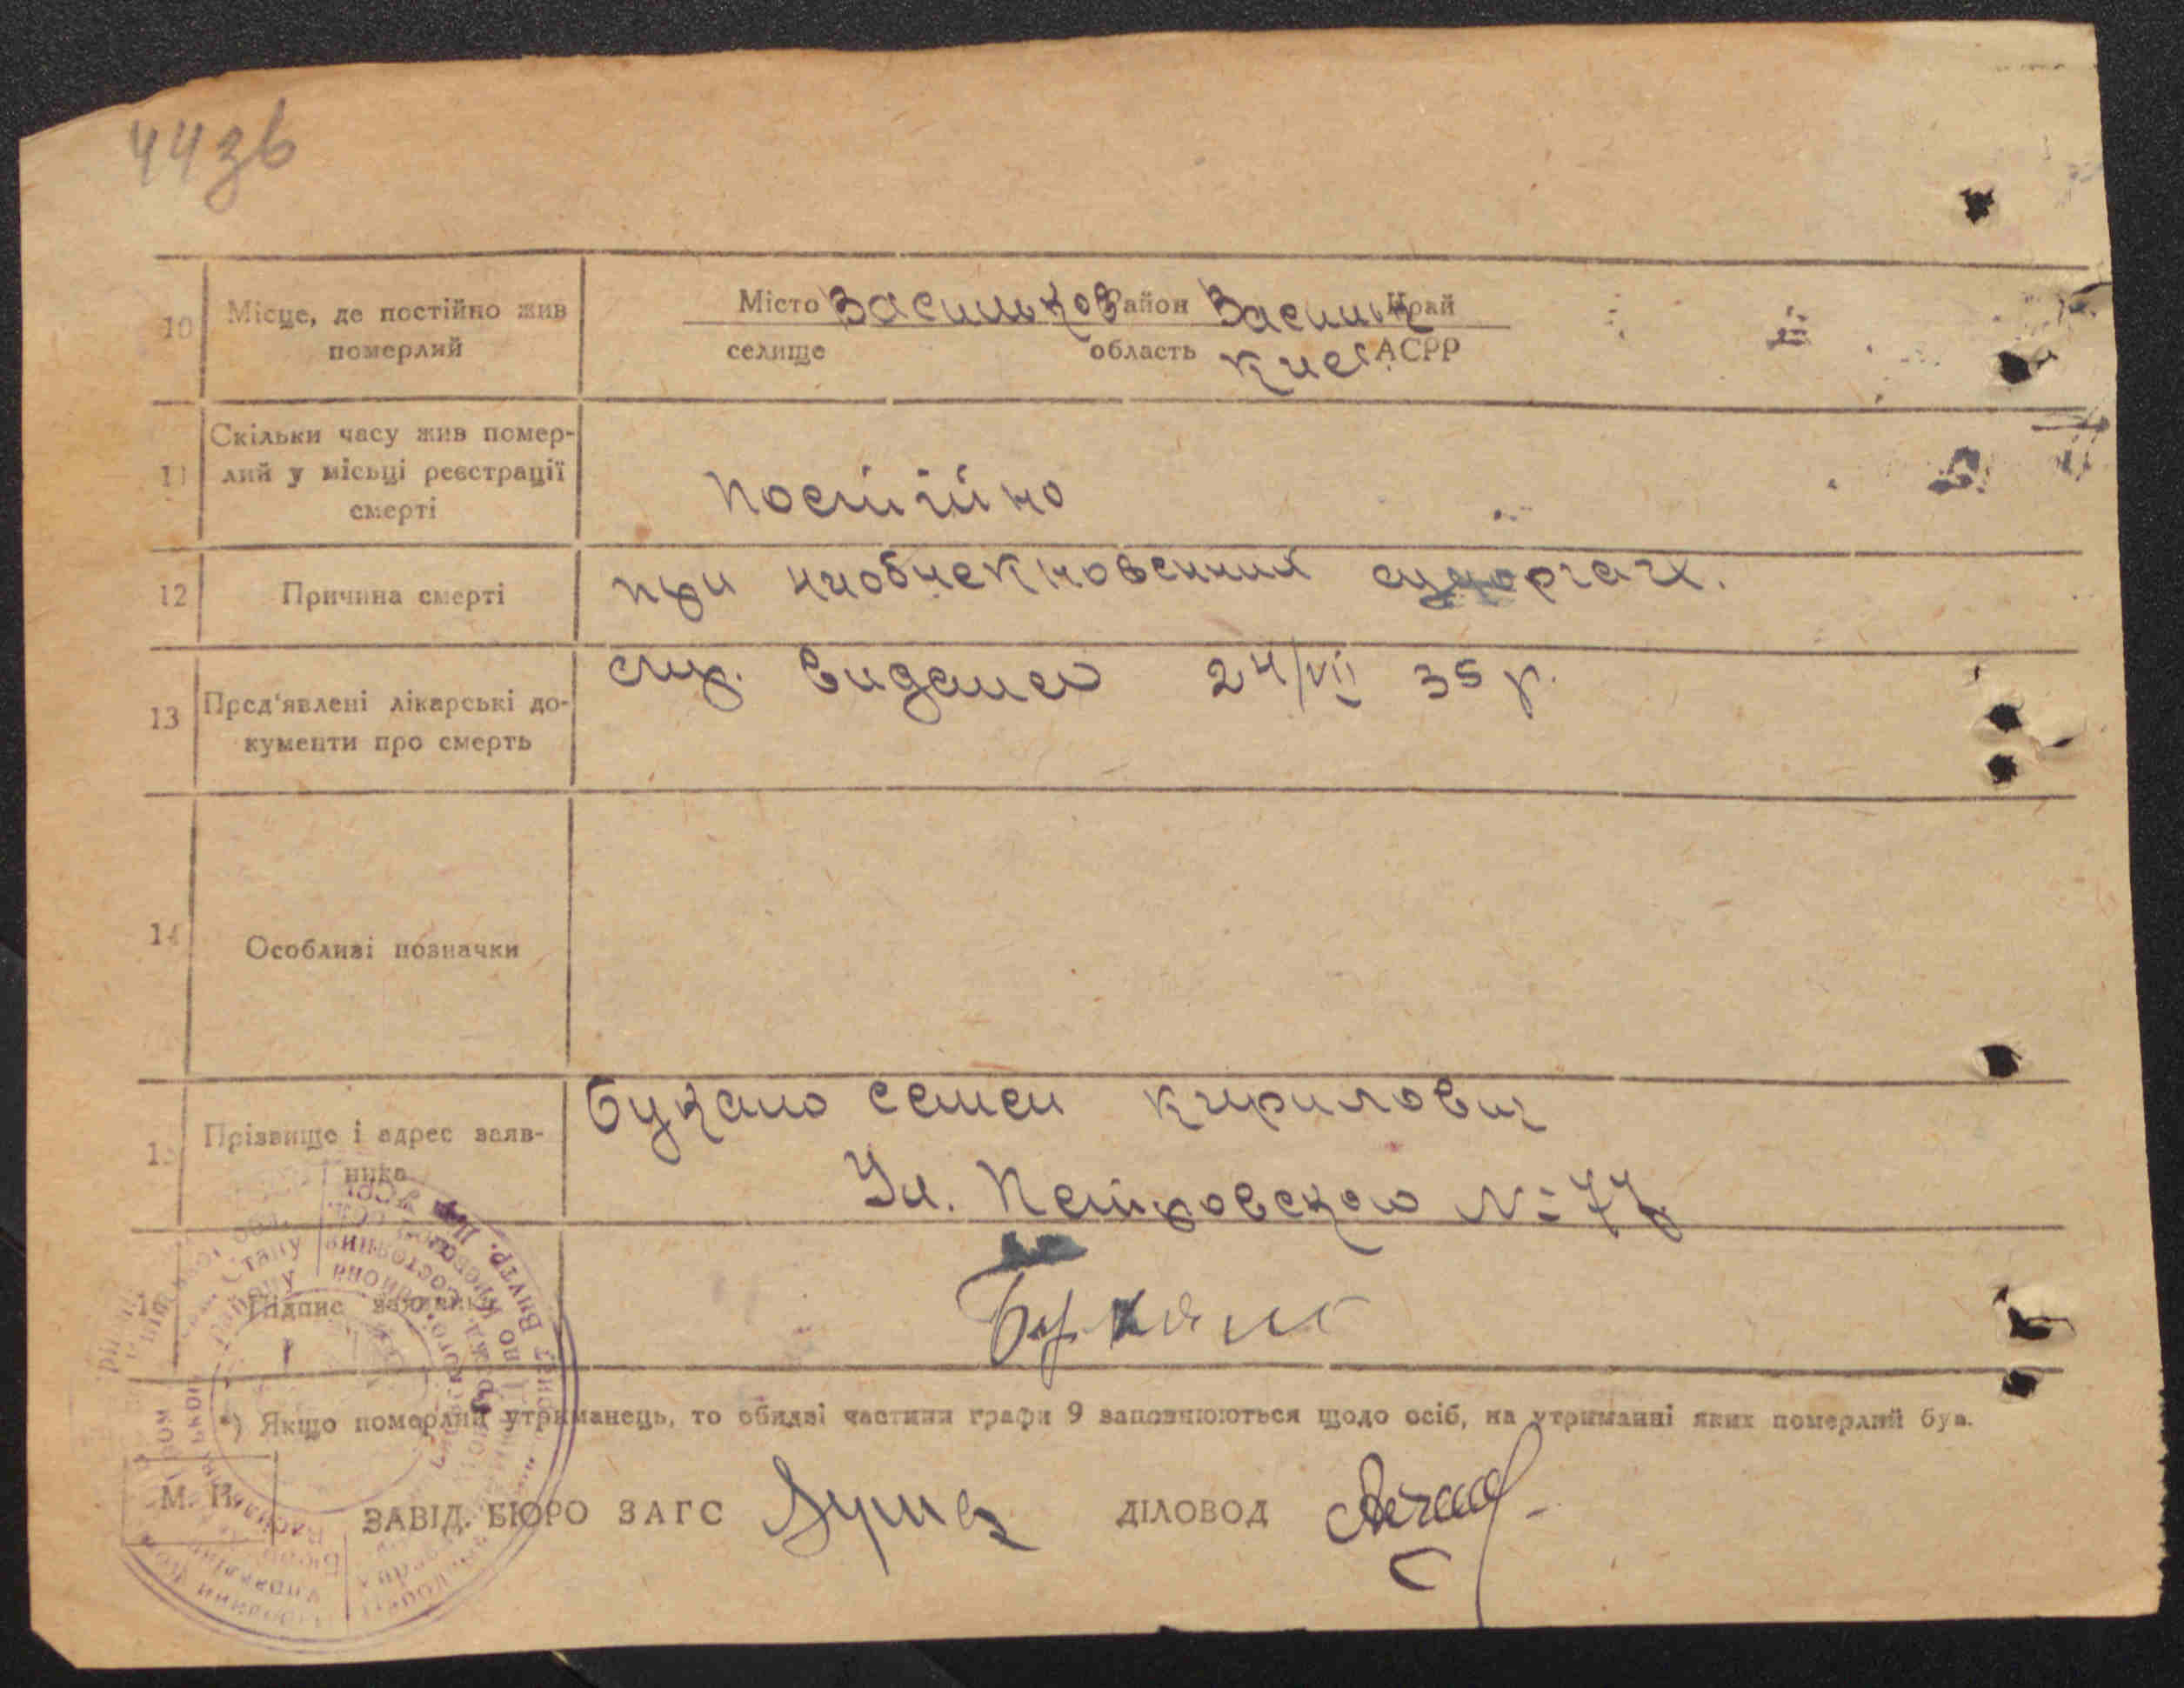 44зв
10 Місце, де постійно жив померлий
Місто Васильков Район Васильк Край
селище область Киев АСРР
11 Скільки часу жив помер-
лий у місьці реєстрації
смерті
постійно
12 Причина смерті
при судоргах.
13 Пред'явлені лікарські до-
кументи про смерть
видано 24/VII 35 р.
14 Особливі позначки
15 Прізвище і адрес заяв-
ника
Букало семен кирилович
Ул. Петровского № 77
16 Підпис заявника
Букало
*) Якщо померлий утриманець, то обидві частини графи 9 заповнюються щодо осіб, на утриманні яких померлий був.
М. П.
ЗАВІД. БЮРО ЗАГС ДІЛОВОД